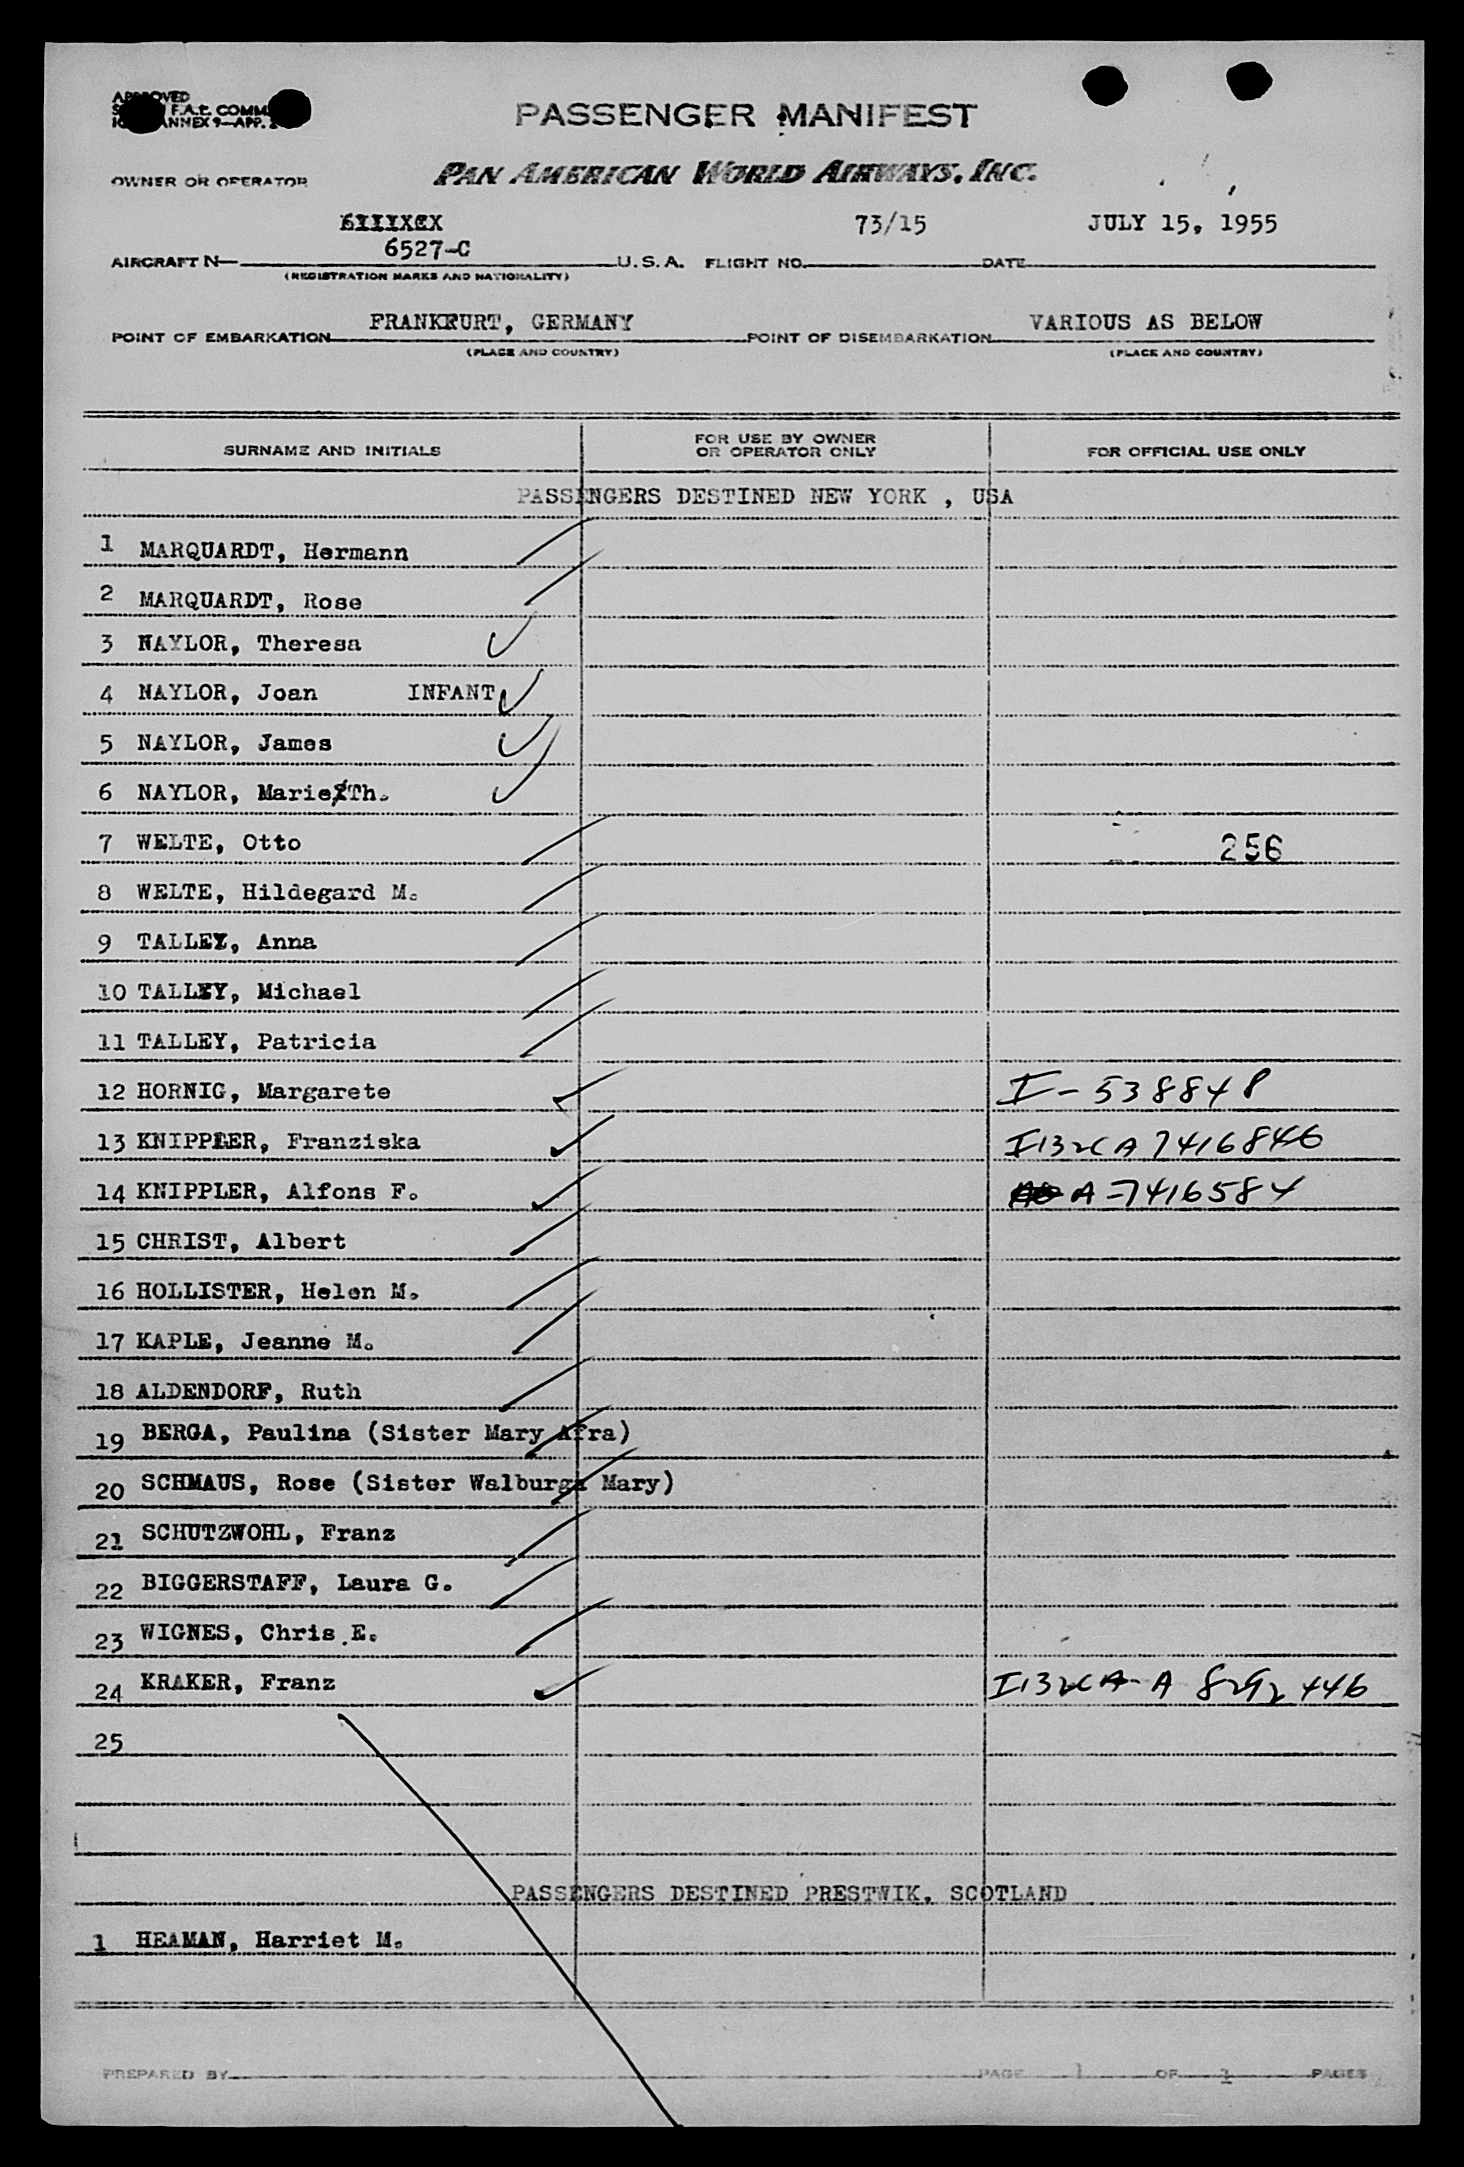 APPROVED
F.A.L. COMM
ANNEX 9—APP. 2
PASSENGER MANIFEST
OWNER OR OPERATOR PAN AMERICAN WORLD AIRWAYS, INC.
73/15 JULY 15, 1955
6527-C
AIRCRAFT N— U.S.A. FLIGHT NO. DATE
(REGISTRATION MARKS AND NATIONALITY)
FRANKFURT, GERMANY VARIOUS AS BELOW
POINT OF EMBARKATION POINT OF DISEMBARKATION
(PLACE AND COUNTRY) (PLACE AND COUNTRY)
SURNAME AND INITIALS FOR USE BY OWNER OR OPERATOR ONLY FOR OFFICIAL USE ONLY
PASSENGERS DESTINED NEW YORK , USA
1 MARQUARDT, Hermann
2 MARQUARDT, Rose
3 NAYLOR, Theresa
4 NAYLOR, Joan INFANT
5 NAYLOR, James
6 NAYLOR, Marie Th.
7 WELTE, Otto 256
8 WELTE, Hildegard M.
9 TALLEY, Anna
10 TALLEY, Michael
11 TALLEY, Patricia
12 HORNIG, Margarete I-538848
13 KNIPPLER, Franziska I132CA 7416846
14 KNIPPLER, Alfons F. A-7416584
15 CHRIST, Albert
16 HOLLISTER, Helen M.
17 KAPLE, Jeanne M.
18 ALDENDORF, Ruth
19 BERGA, Paulina (Sister Mary Afra)
20 SCHMAUS, Rose (Sister Walburga Mary)
21 SCHUTZWOHL, Franz
22 BIGGERSTAFF, Laura G.
23 WIGNES, Chris E.
24 KRAKER, Franz I132CA-A 8292446
25
PASSENGERS DESTINED PRESTWIK, SCOTLAND
1 HEAMAN, Harriet M.
PREPARED BY PAGE 1 OF 1 PAGES